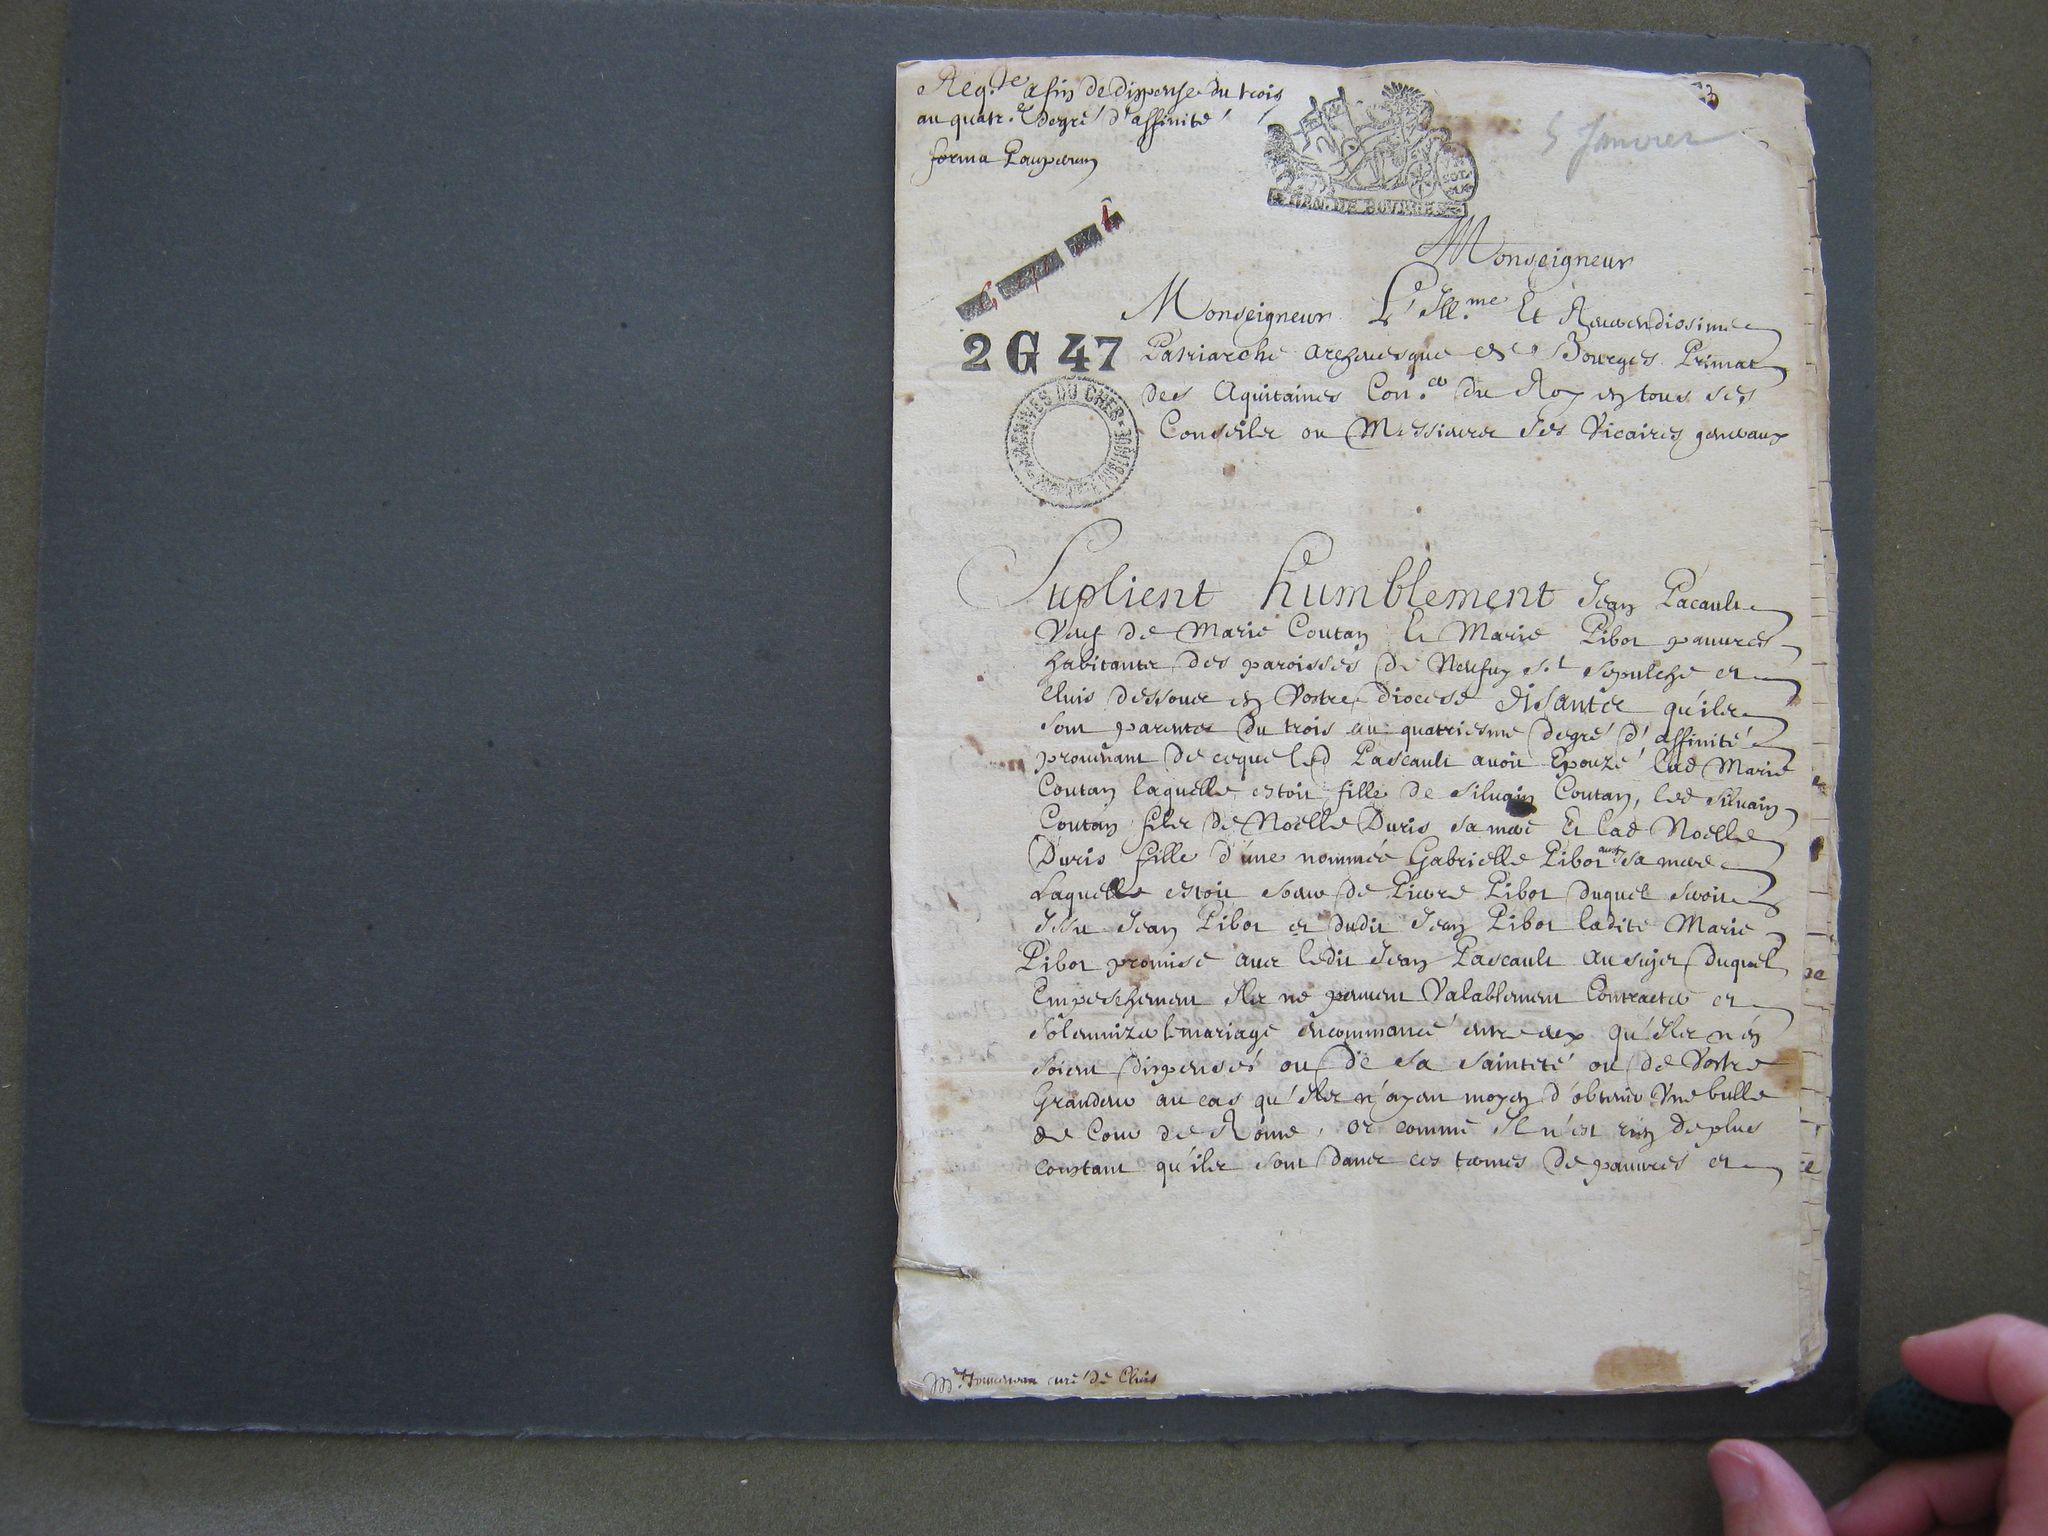 Req.te afin de dispense du trois
au quatr.e degré d'affinité
forma Pauperum
3
5 Janvier
SOL
GEN. DE BOVRGES
2 G 47
ARCHIVES DU CHER
Monseigneur
Monseigneur L'Ill.me Et Reverendissime
Patriarche archevesque de Bourges Primat
des Aquitaines Con.er du Roy en tous ses
Conseils ou Messieurs ses Vicaires generaux
Suplient humblement Jean Pacault
Veuf de Marie Coutan Et Marie Pibot pauvres
habitants des paroisses de Neufuy s.t sepulchre et
Cluis dessous en Vostre diocese disants qu'ils
sont parents du trois au quatriesme degré d'affinité
provenant de ceque led Pascault avoit Epouzé lad Marie
Coutan laquelle estoit fille de Silvain Coutan, led Silvain
Coutan fils de Noëlle Duris sa mere Et lad Noëlle
Duris fille d'une nommée Gabrielle Pibot aussy sa mere
Laquelle estoit soeur de Pierre Pibot duquel seroit
Issu Jean Pibot et dudit Jean Pibot ladite Marie
Pibot promise avec ledit Jean Pascault au sujet duquel
Empeschement Ils ne peuvent Valablement Contracter et
Solemnizer le mariage encommancé entre eux qu'Ils n'en
soient dispensés ou de sa sainteté ou de Vostre
Grandeur au cas qu'Ils n'ayent moyen d'obtenir Une bulle
de Cour de Rome, or comme Il n'est rien de plus
constant qu'ils sont dans ces termes de pauvres et
curé de Cluis